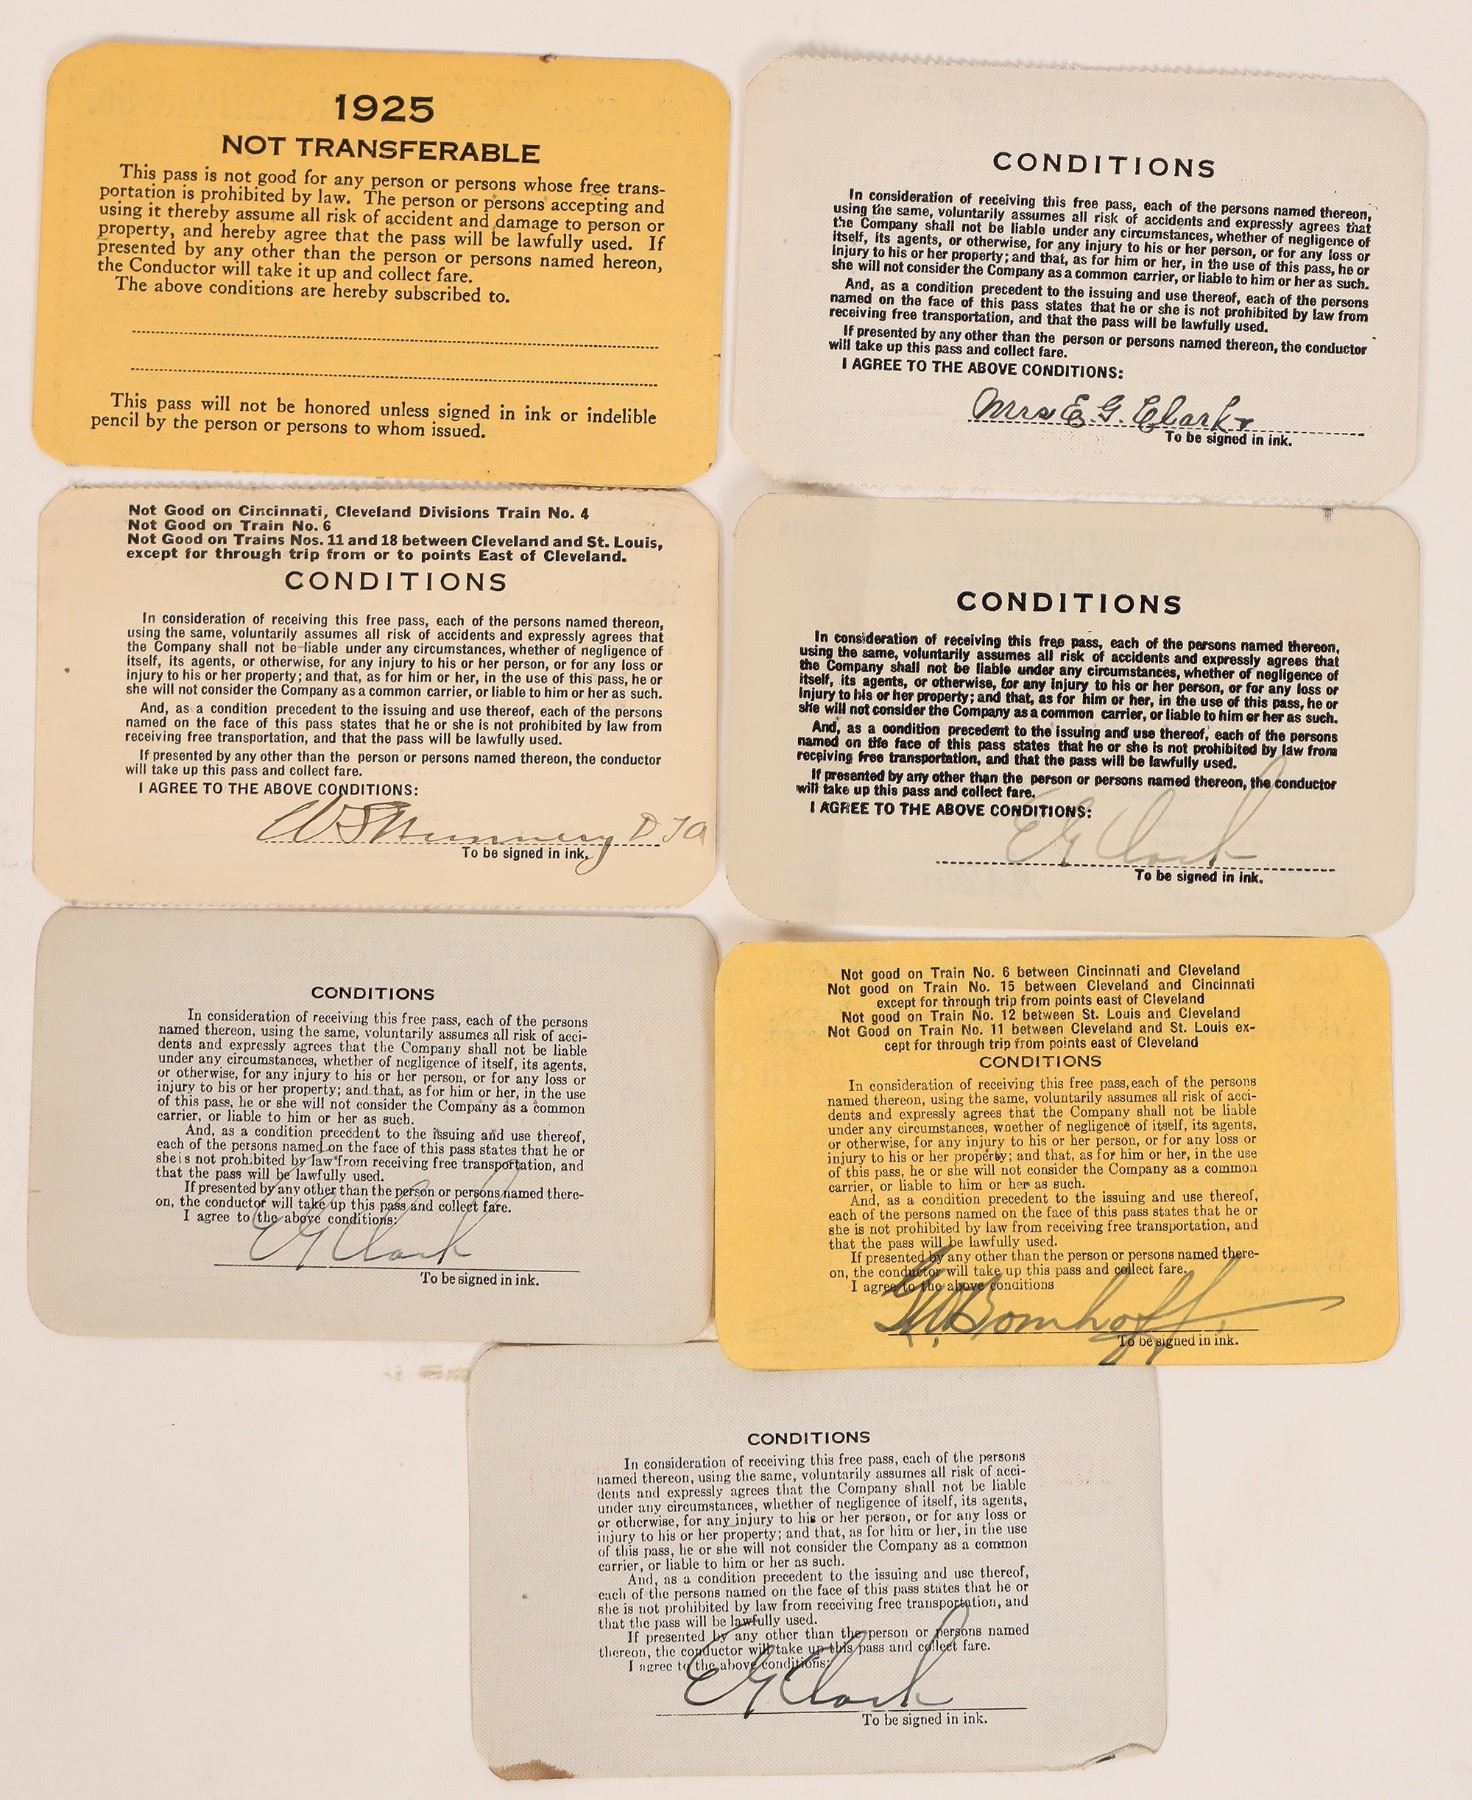 1925
NOT TRANSFERABLE
This pass is not good for any person or persons whose free trans-
portation is prohibited by law. The person or persons accepting and
using it thereby assume all risk of accident and damage to person or
property, and hereby agree that the pass will be lawfully used. If
presented by any other than the person or persons named hereon,
the Conductor will take it up and collect fare.
The above conditions are hereby subscribed to.
This pass will not be honored unless signed in ink or indelible
pencil by the person or persons to whom issued.
CONDITIONS
In consideration of receiving this free pass, each of the persons named thereon,
using the same, voluntarily assumes all risk of accidents and expressly agrees that
the Company shall not be liable under any circumstances, whether of negligence of
itself, its agents, or otherwise, for any injury to his or her person, or for any loss or
injury to his or her property; and that, as for him or her, in the use of this pass, he or
she will not consider the Company as a common carrier, or liable to him or her as such.
And, as a condition precedent to the issuing and use thereof, each of the persons
named on the face of this pass states that he or she is not prohibited by law from
receiving free transportation, and that the pass will be lawfully used.
If presented by any other than the person or persons named thereon, the conductor
will take up this pass and collect fare.
I AGREE TO THE ABOVE CONDITIONS:
Mrs E. G. Clark
To be signed in ink.
Not Good on Cincinnati, Cleveland Divisions Train No. 4
Not Good on Train No. 6
Not Good on Trains Nos. 11 and 18 between Cleveland and St. Louis,
except for through trip from or to points East of Cleveland.
CONDITIONS
In consideration of receiving this free pass, each of the persons named thereon,
using the same, voluntarily assumes all risk of accidents and expressly agrees that
the Company shall not be liable under any circumstances, whether of negligence of
itself, its agents, or otherwise, for any injury to his or her person, or for any loss or
injury to his or her property; and that, as for him or her, in the use of this pass, he or
she will not consider the Company as a common carrier, or liable to him or her as such.
And, as a condition precedent to the issuing and use thereof, each of the persons
named on the face of this pass states that he or she is not prohibited by law from
receiving free transportation, and that the pass will be lawfully used.
If presented by any other than the person or persons named thereon, the conductor
will take up this pass and collect fare.
I AGREE TO THE ABOVE CONDITIONS:
To be signed in ink.
CONDITIONS
In consideration of receiving this free pass, each of the persons named thereon,
using the same, voluntarily assumes all risk of accidents and expressly agrees that
the Company shall not be liable under any circumstances, whether of negligence of
itself, its agents, or otherwise, for any injury to his or her person, or for any loss or
injury to his or her property; and that, as for him or her, in the use of this pass, he or
she will not consider the Company as a common carrier, or liable to him or her as such.
And, as a condition precedent to the issuing and use thereof, each of the persons
named on the face of this pass states that he or she is not prohibited by law from
receiving free transportation, and that the pass will be lawfully used.
If presented by any other than the person or persons named thereon, the conductor
will take up this pass and collect fare.
I AGREE TO THE ABOVE CONDITIONS:
E G Clark
To be signed in ink.
CONDITIONS
In consideration of receiving this free pass, each of the persons
named thereon, using the same, voluntarily assumes all risk of acci-
dents and expressly agrees that the Company shall not be liable
under any circumstances, whether of negligence of itself, its agents,
or otherwise, for any injury to his or her person, or for any loss or
injury to his or her property; and that, as for him or her, in the use
of this pass, he or she will not consider the Company as a common
carrier, or liable to him or her as such.
And, as a condition precedent to the issuing and use thereof,
each of the persons named on the face of this pass states that he or
she is not prohibited by law from receiving free transportation, and
that the pass will be lawfully used.
If presented by any other than the person or persons named there-
on, the conductor will take up this pass and collect fare.
I agree to the above conditions:
E G Clark
To be signed in ink.
Not good on Train No. 6 between Cincinnati and Cleveland
Not good on Train No. 15 between Cleveland and Cincinnati
except for through trip from points east of Cleveland
Not good on Train No. 12 between St. Louis and Cleveland
Not Good on Train No. 11 between Cleveland and St. Louis ex-
cept for through trip from points east of Cleveland
CONDITIONS
In consideration of receiving this free pass, each of the persons
named thereon, using the same, voluntarily assumes all risk of acci-
dents and expressly agrees that the Company shall not be liable
under any circumstances, whether of negligence of itself, its agents,
or otherwise, for any injury to his or her person, or for any loss or
injury to his or her property; and that, as for him or her, in the use
of this pass, he or she will not consider the Company as a common
carrier, or liable to him or her as such.
And, as a condition precedent to the issuing and use thereof,
each of the persons named on the face of this pass states that he or
she is not prohibited by law from receiving free transportation, and
that the pass will be lawfully used.
If presented by any other than the person or persons named there-
on, the conductor will take up this pass and collect fare.
I agree to the above conditions
Bomhoff
To be signed in ink.
CONDITIONS
In consideration of receiving this free pass, each of the persons
named thereon, using the same, voluntarily assumes all risk of acci-
dents and expressly agrees that the Company shall not be liable
under any circumstances, whether of negligence of itself, its agents,
or otherwise, for any injury to his or her person, or for any loss or
injury to his or her property; and that, as for him or her, in the use
of this pass, he or she will not consider the Company as a common
carrier, or liable to him or her as such.
And, as a condition precedent to the issuing and use thereof,
each of the persons named on the face of this pass states that he or
she is not prohibited by law from receiving free transportation, and
that the pass will be lawfully used.
If presented by any other than the person or persons named
thereon, the conductor will take up this pass and collect fare.
I agree to the above conditions:
E G Clark
To be signed in ink.